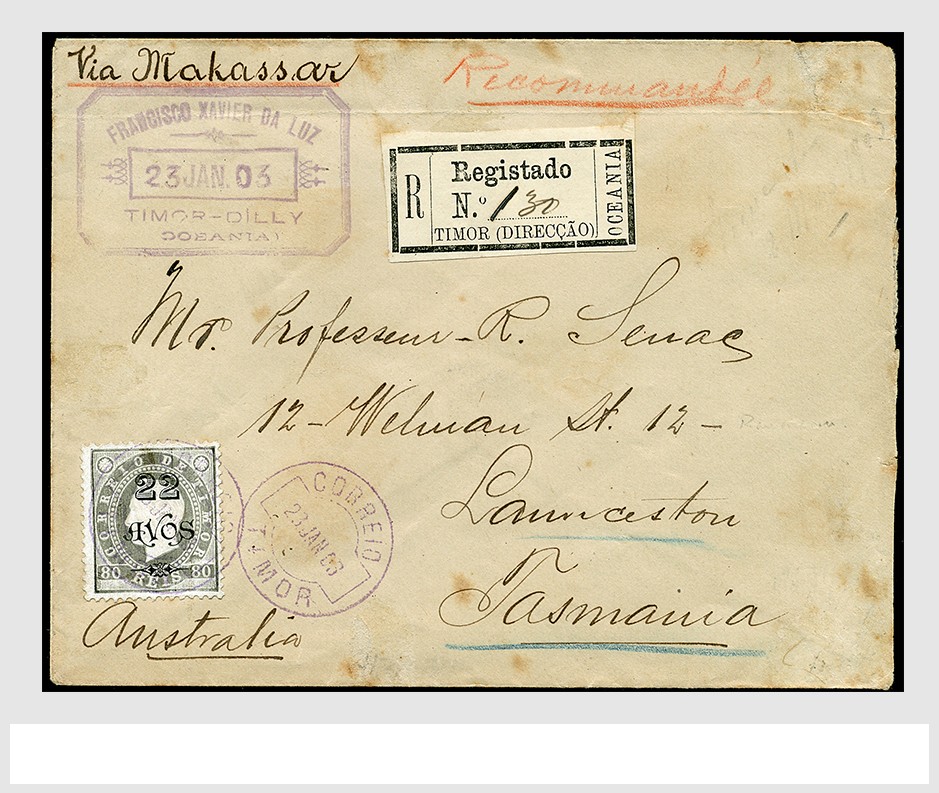 Via Makassar
Recommandée
FRANCISCO XAVIER DA LUZ
23 JAN. 03
TIMOR-DILLY
OCEANIA)
R
Registado
N.º 130
TIMOR (DIRECÇÃO)
OCEANIA
Mr. Professeur R. Senac
12 - Welman St. 12 -
Launceston
Tasmania
CORREIO DE TIMOR
22
AVOS
80 REIS 80
CORREIO
23 JAN 03
TIMOR
Australia